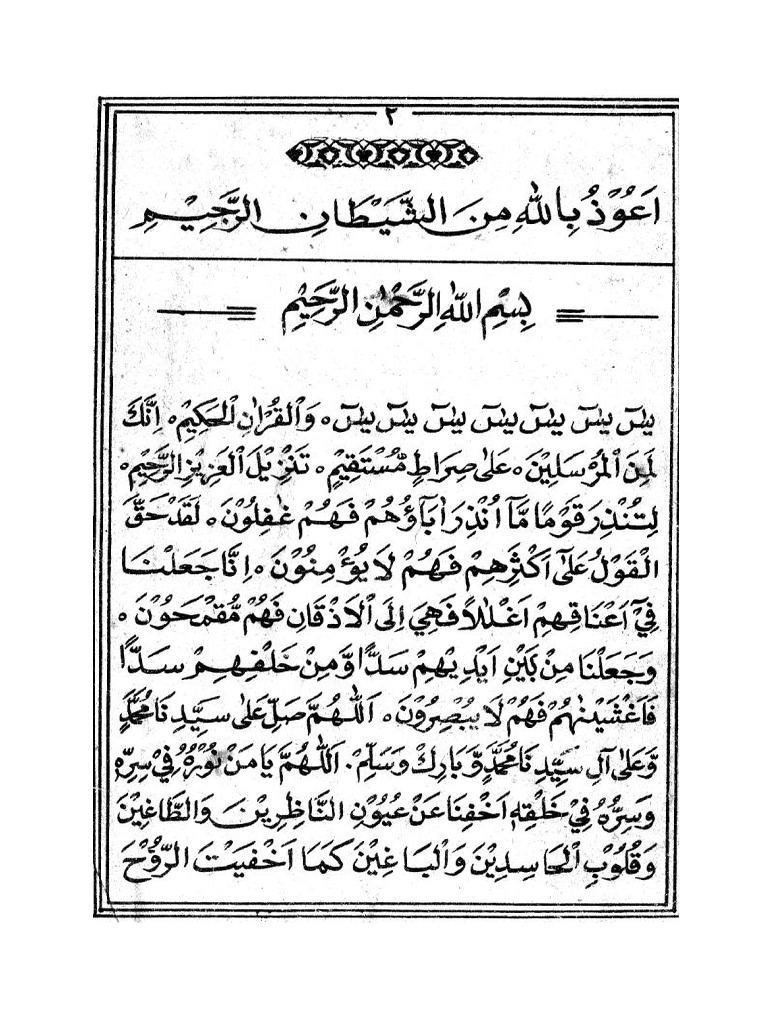 ٢
اَعُوْذُ بِاللهِ مِنَ الشَّيْطَانِ الرَّجِيْمِ
بِسْمِ اللهِ الرَّحْمٰنِ الرَّحِيْمِ
يسٓ يسٓ يسٓ يسٓ يسٓ يسٓ يسٓ ه وَالْقُرْاٰنِ الْحَكِيْمِ ه اِنَّكَ
لَمِنَ الْمُرْسَلِيْنَ ه عَلٰى صِرَاطٍ مُّسْتَقِيْمٍ ه تَنْزِيْلَ الْعَزِيْزِ الرَّحِيْمِ ه
لِتُنْذِرَ قَوْمًا مَّآ اُنْذِرَ اٰبَآؤُهُمْ فَهُمْ غٰفِلُوْنَ ه لَقَدْ حَقَّ
الْقَوْلُ عَلٰٓى اَكْثَرِهِمْ فَهُمْ لَا يُؤْمِنُوْنَ ه اِنَّا جَعَلْنَا
فِيْٓ اَعْنَاقِهِمْ اَغْلٰلًا فَهِيَ اِلَى الْاَذْقَانِ فَهُمْ مُّقْمَحُوْنَ ه
وَجَعَلْنَا مِنْ بَيْنِ اَيْدِيْهِمْ سَدًّا وَّمِنْ خَلْفِهِمْ سَدًّا
فَاَغْشَيْنٰهُمْ فَهُمْ لَا يُبْصِرُوْنَ ه اَللّٰهُمَّ صَلِّ عَلٰى سَيِّدِنَا مُحَمَّدٍ
وَّعَلٰى آلِ سَيِّدِنَا مُحَمَّدٍ وَّبَارِكْ وَسَلِّمْ. اَللّٰهُمَّ يَا مَنْ نُوْرُهُ فِيْ سِرِّهِ
وَسِرُّهُ فِيْ خَلْقِهِ اَخْفِنَا عَنْ عُيُوْنِ النَّاظِرِيْنَ وَالطَّاغِيْنَ
وَقُلُوْبِ الْحَاسِدِيْنَ وَالْبَاغِيْنَ كَمَا اَخْفَيْتَ الرُّوْحَ